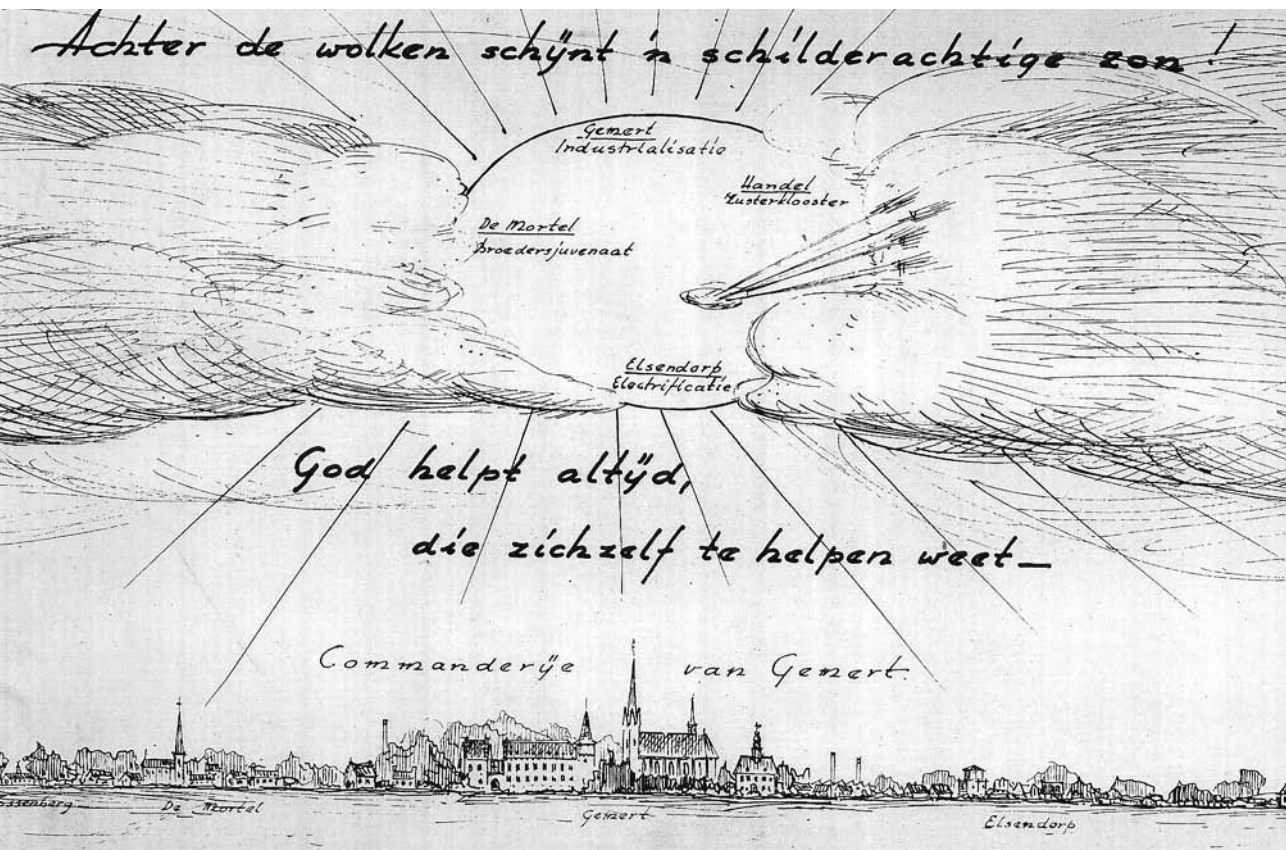 Achter de wolken schÿnt 'n schilderachtige zon!
Gemert
Industrialisatie
Handel
Zusterklooster
De Mortel
Broedersjuvenaat
Elsendorp
Electrificatie
God helpt altÿd,
die zichzelf te helpen weet—
Commanderÿe van Gemert.
De Mortel
Gemert
Elsendorp